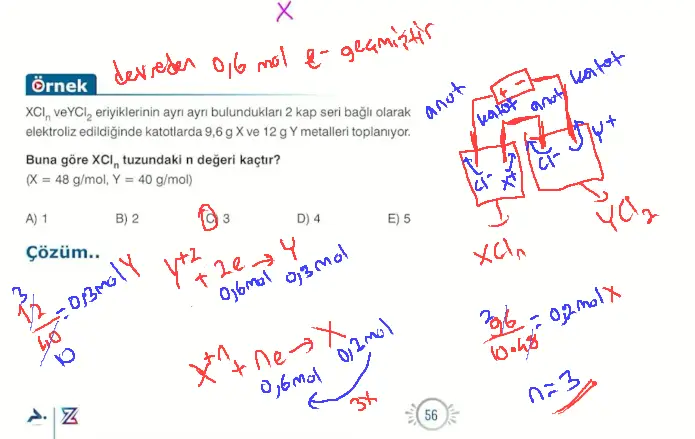 X
devreden 0,6 mol e- geçmiştir
Örnek
XClₙ veYCl₂ eriyiklerinin ayrı ayrı bulundukları 2 kap seri bağlı olarak
elektroliz edildiğinde katotlarda 9,6 g X ve 12 g Y metalleri toplanıyor.
Buna göre XClₙ tuzundaki n değeri kaçtır?
(X = 48 g/mol, Y = 40 g/mol)
A) 1 B) 2 C) 3 D) 4 E) 5
+ -
anot katot anot katot
Cl- X+ Cl- Y+
XClₙ YCl₂
Çözüm..
3
12/40 = 0,3 mol Y
10
Y+2 + 2e → Y
0,6mol 0,3mol
X+n + ne → X
0,6mol 0,2mol
3x
2
96/10.48 = 0,2mol X
n=3
56